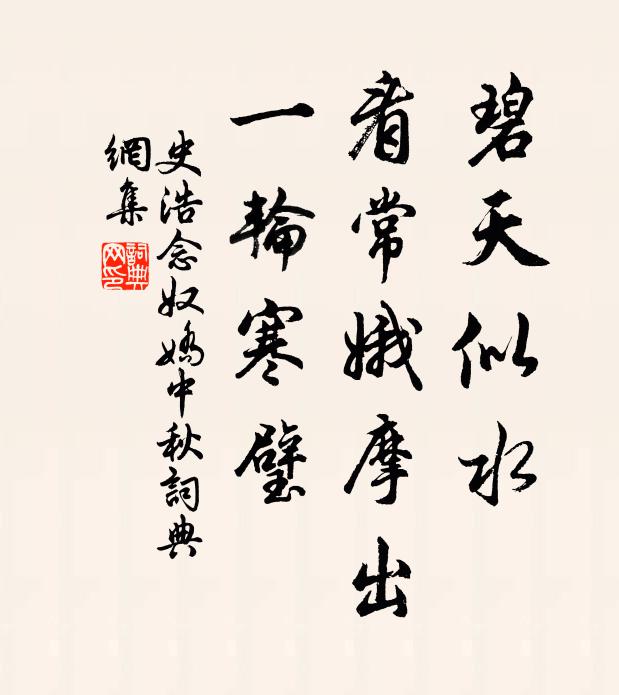 碧天似水
看常娥摩出
一輪寒璧
史浩念奴嬌中秋詞典
網集
詞典
网印